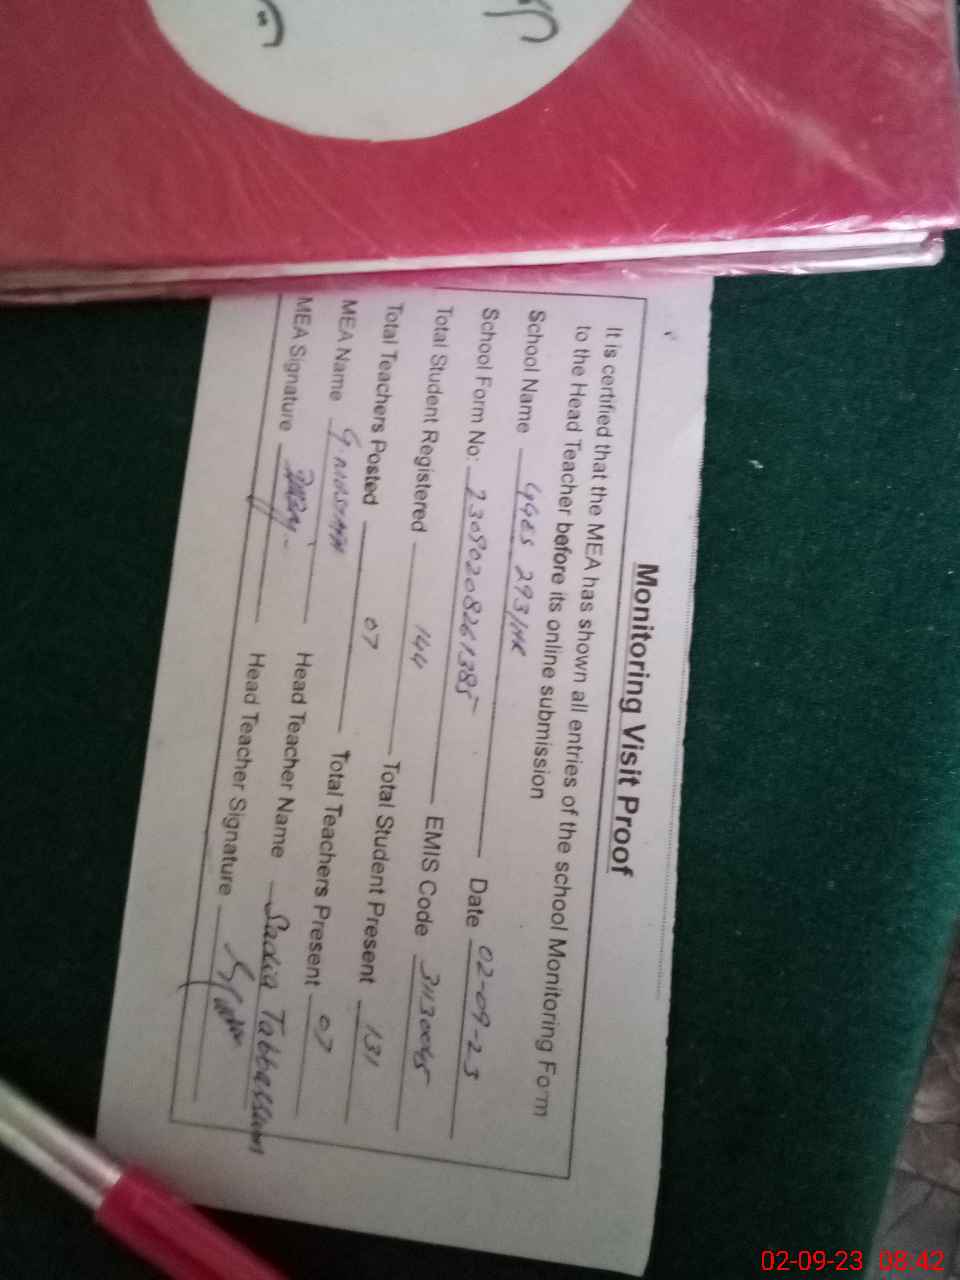 Monitoring Visit Proof
It is certified that the MEA has shown all entries of the school Monitoring Form
to the Head Teacher before its online submission
School Name GGES 293/HR
School Form No: 23090208261385 Date 02-09-23
Total Student Registered 144 EMIS Code
Total Teachers Posted 07 Total Student Present 131
MEA Name Total Teachers Present 07
MEA Signature Head Teacher Name Sadia Tabbassum
Head Teacher Signature
02-09-23 08:42